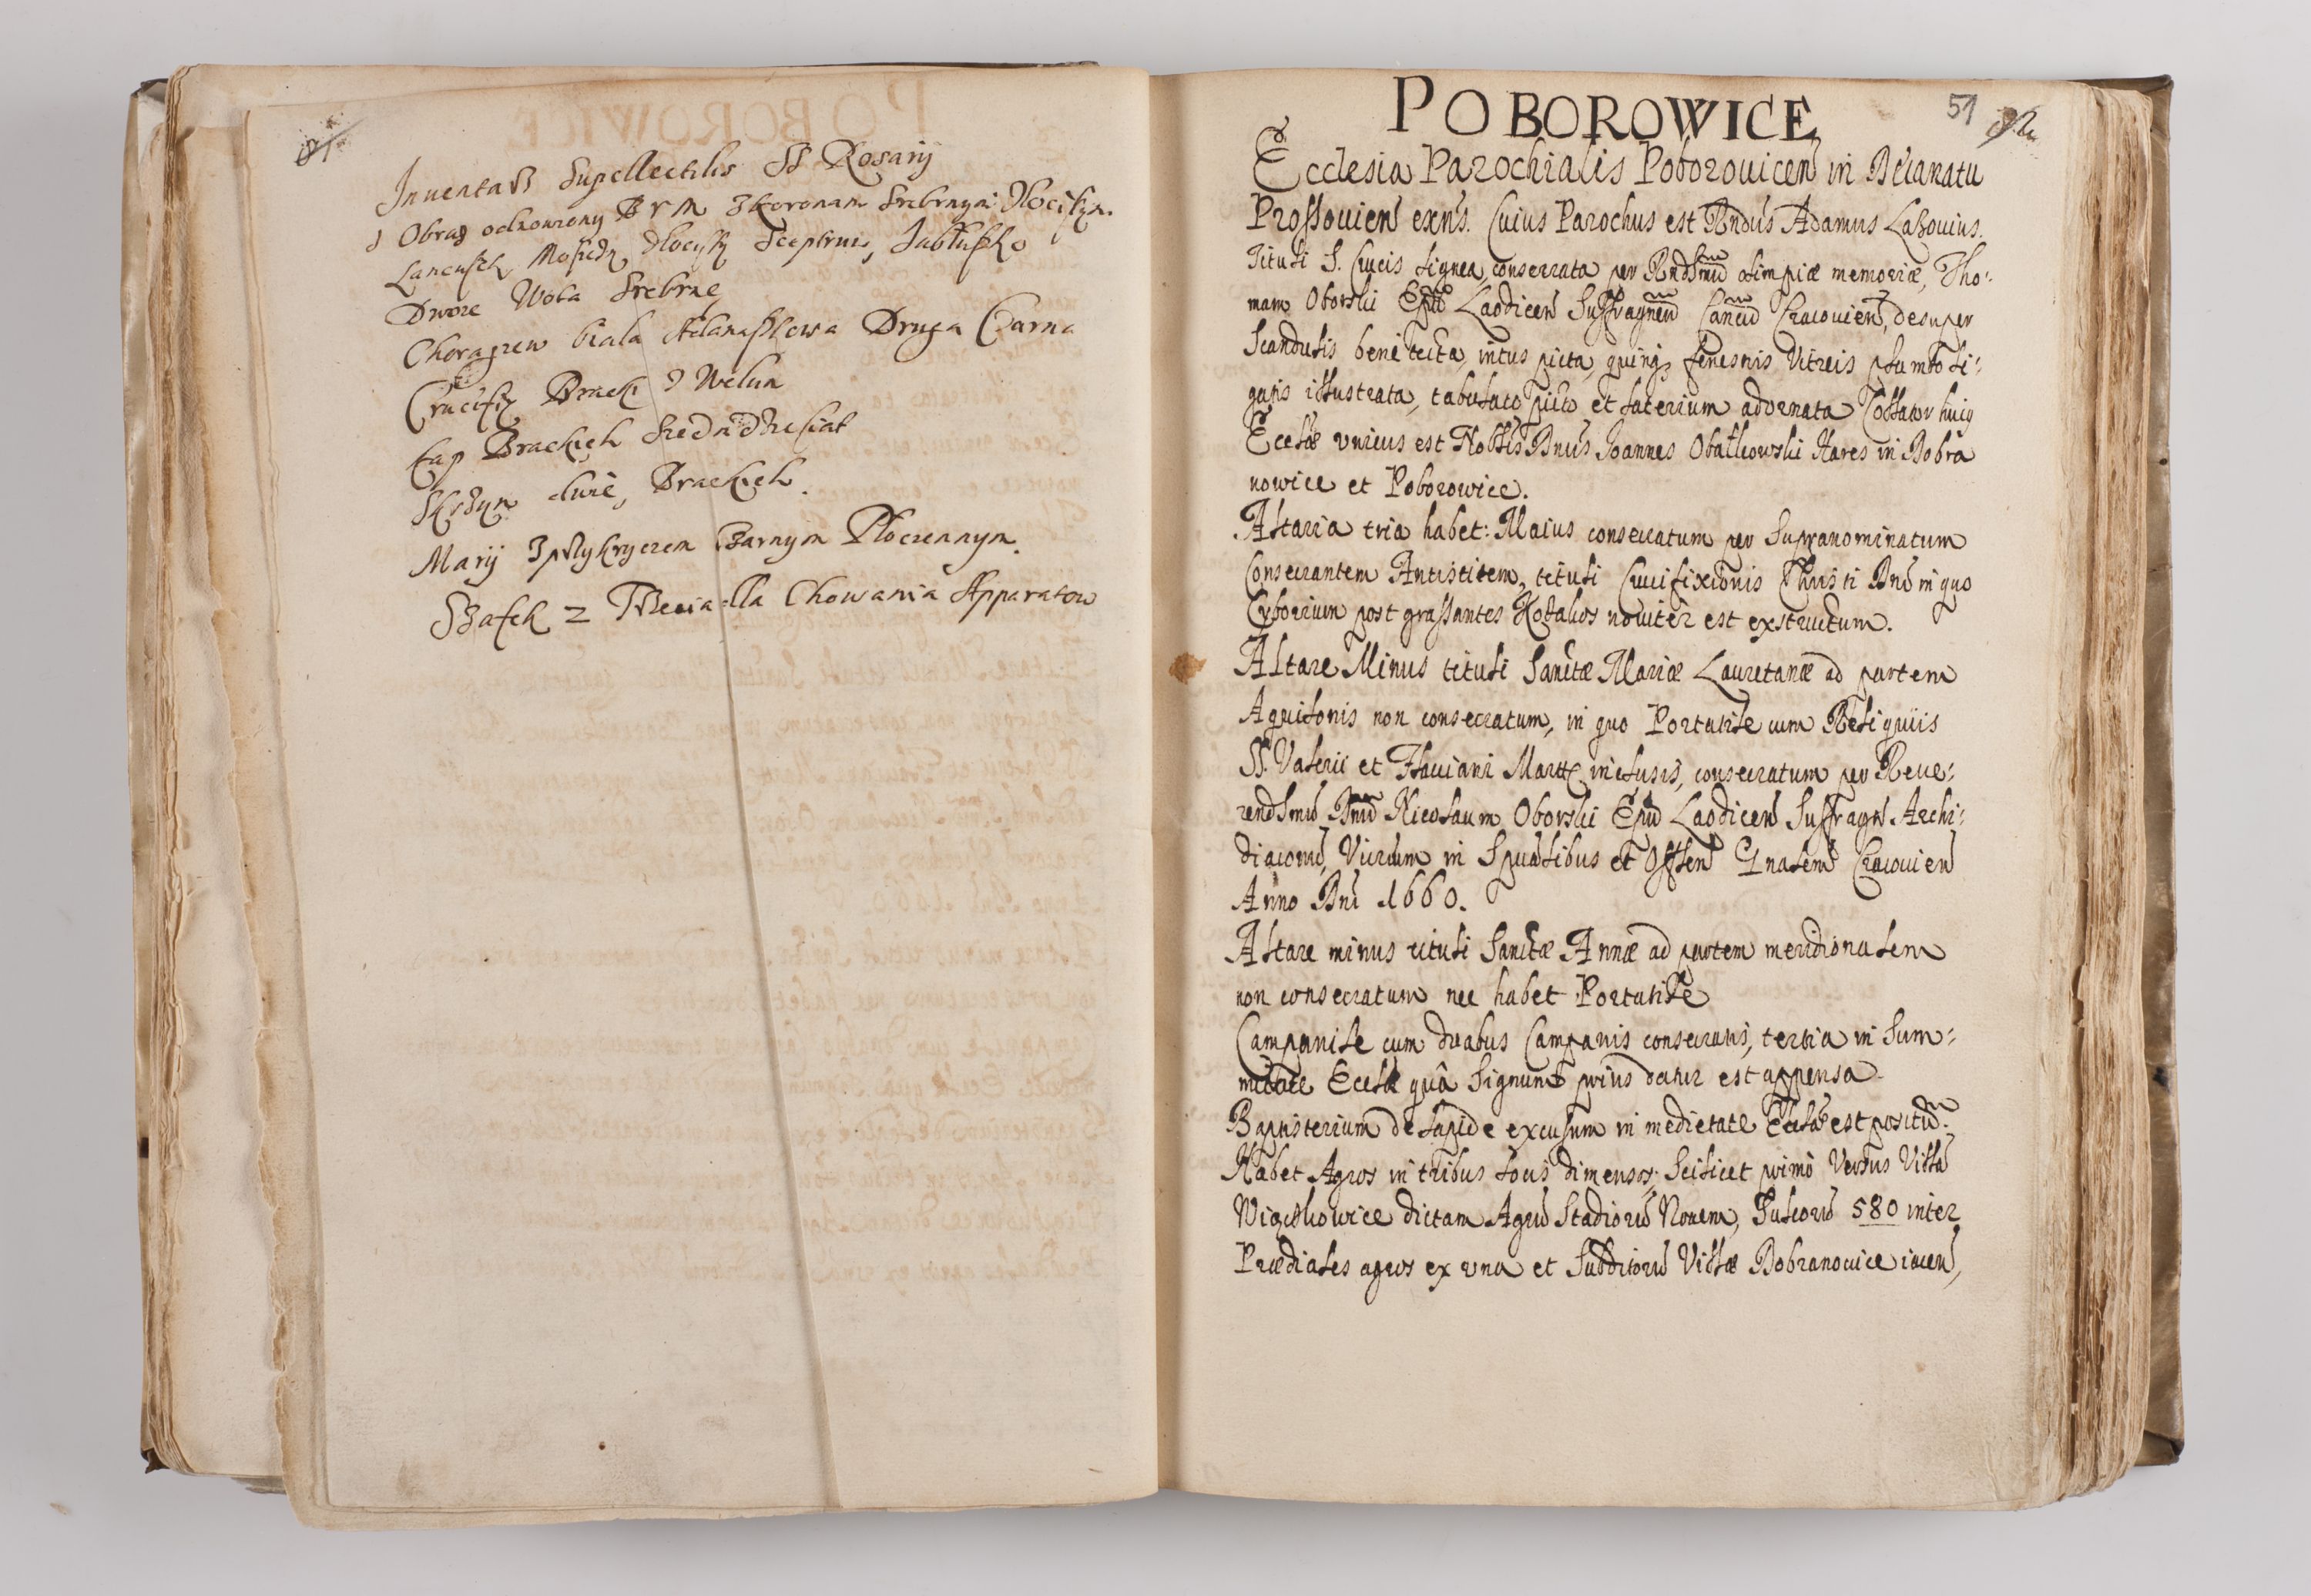 Inuentarz Supellectilis SS Rosarij
1 Obraz B V M Zkoronam Srebrnymi Złocistym.
Lancuszk Mosiedz Złocisty Sceptrum, Jabłuszko
Dwoie Wota Srebrne
Choragiew biała Adamaszkowa Druga Czarna
Crucifix Bracki 1 Welum
Kap Brackich Siedmdziesiat
Skrzyn dwie, Brackich.
Mary Zprzykryciem Czarnym Płociennym.
Szafek 2 Trzecia dla Chowania Apparatow
POBOROWICE
51
Ecclesia Parochialis Poborouicen in Decanatu
Prossouien exns. Cuius Parochus est Rndus Adamus Lasouius.
Tituli S. Crucis lignea, consecrata per Rndsmu olimpiæ memoriæ, Tho:
mam Oborski Epu Laodicen Suffraganeu Cancu Cracouien, desuper
Scandulis bene tecta, intus picta, quinq fenestris Vitreis plumbo li:
gatis illustrata, tabulato picto et laterium adornata Collator huiq
Ecclæ vnicus est Noblis Dnus Joannes Obałkowski Hæres in Bobra
nowice et Poborowice.
Altaria tria habet: Maius consecratum per Supranominatum
Consecrantem Antistitem, tituli Crucifixionis Christi Dni in quo
Cyborium post grassantes Hostilios nouiter est exstructum.
Altare Minus tituli Sanctæ Mariæ Lauretanæ ad partem
Aquilonis non consecratum, in quo Portatile cum Reliquiis
SS. Valerii et Flauiani Martt inclusis, consecratum per Reue:
rendsmu Dnu Nicolaum Oborski Epu Laodicen Suffragn Archi:
diaconu, Vicrium in Spualibus et Offlem Gnalem Cracouien
Anno Dni 1660.
Altare minus tituli Sanctæ Annæ ad partem meridionalem
non consecratum nec habet Portatile
Campanile cum duabus Campanis consecratis, tertia in Sum:
mitate Ecclæ quâ Signum prius datur est appensa
Baptisterium de lapide excusum in medietate Ecclæ est positu.
Habet Agros in tribus locis dimensos: Scilicet primô Versus Villa
Wiąckowice dictam Agru Stadioru Nouem, Sulcoru 580 inter
Prædiales agros ex vna et Subditoru Villæ Bobranowice iacen,